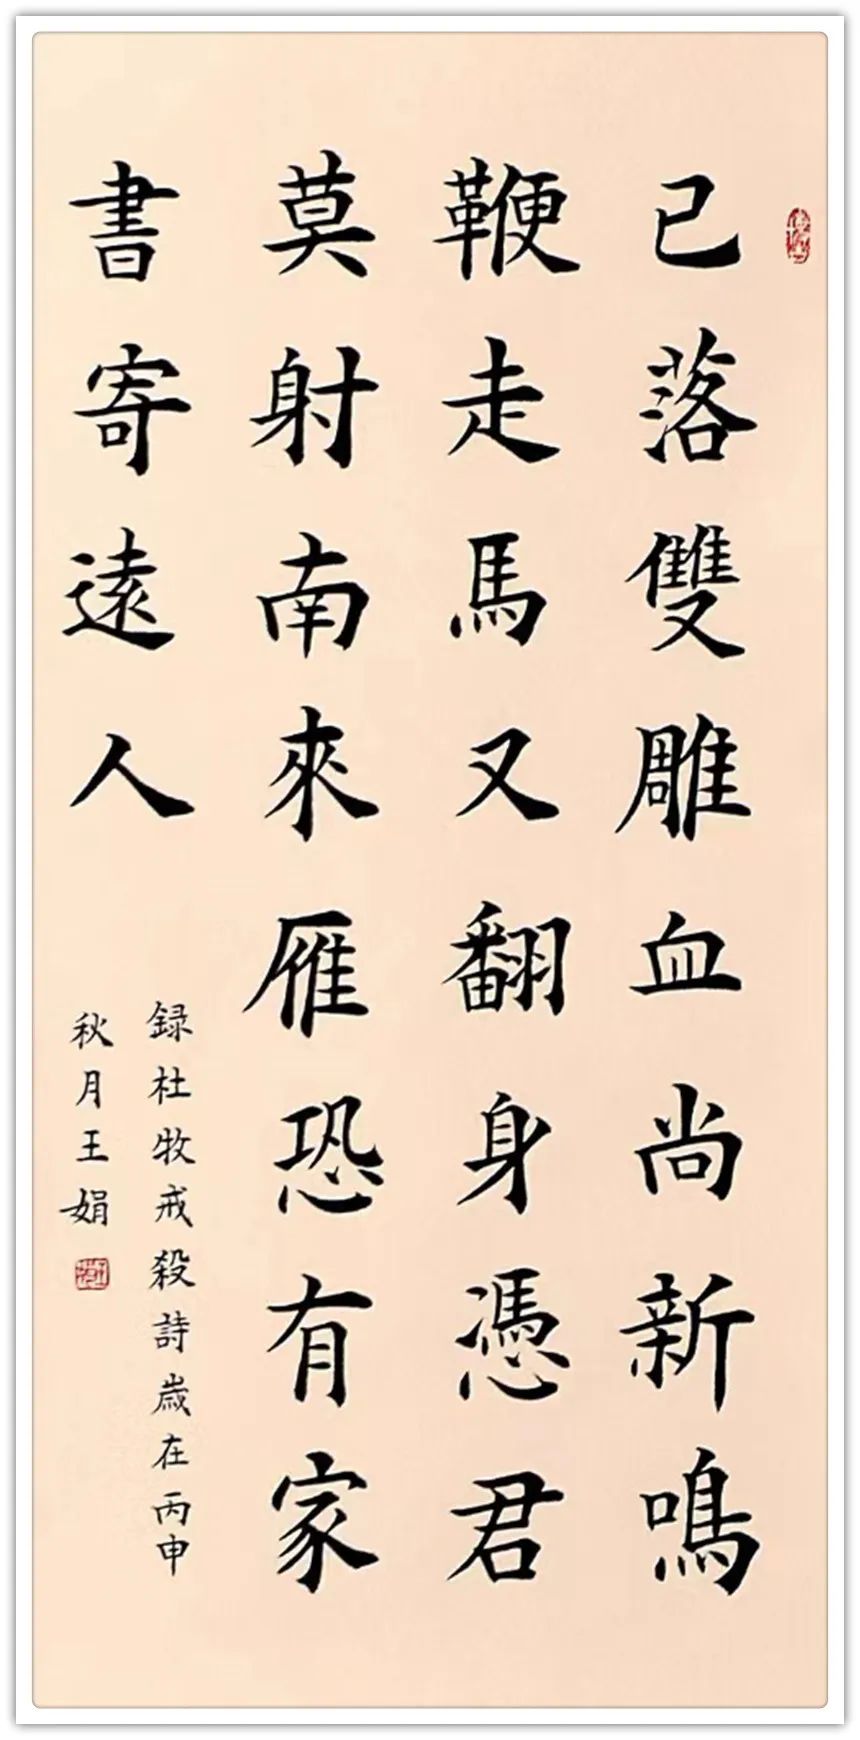 已落雙雕血尚新鳴
鞭走馬又翻身憑君
莫射南來雁恐有家
書寄遠人
録杜牧戒殺詩歲在丙申
秋月王娟